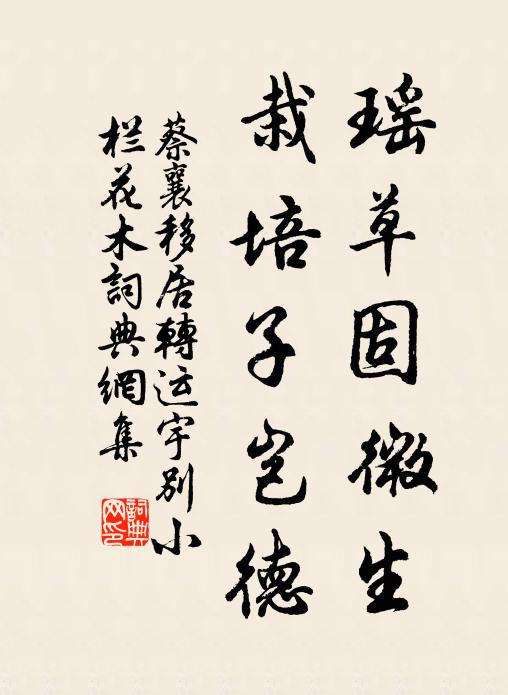 瑶草固微生
栽培子岂德
蔡襄移居轉运宇别小
栏花木詞典網集
詞典网印